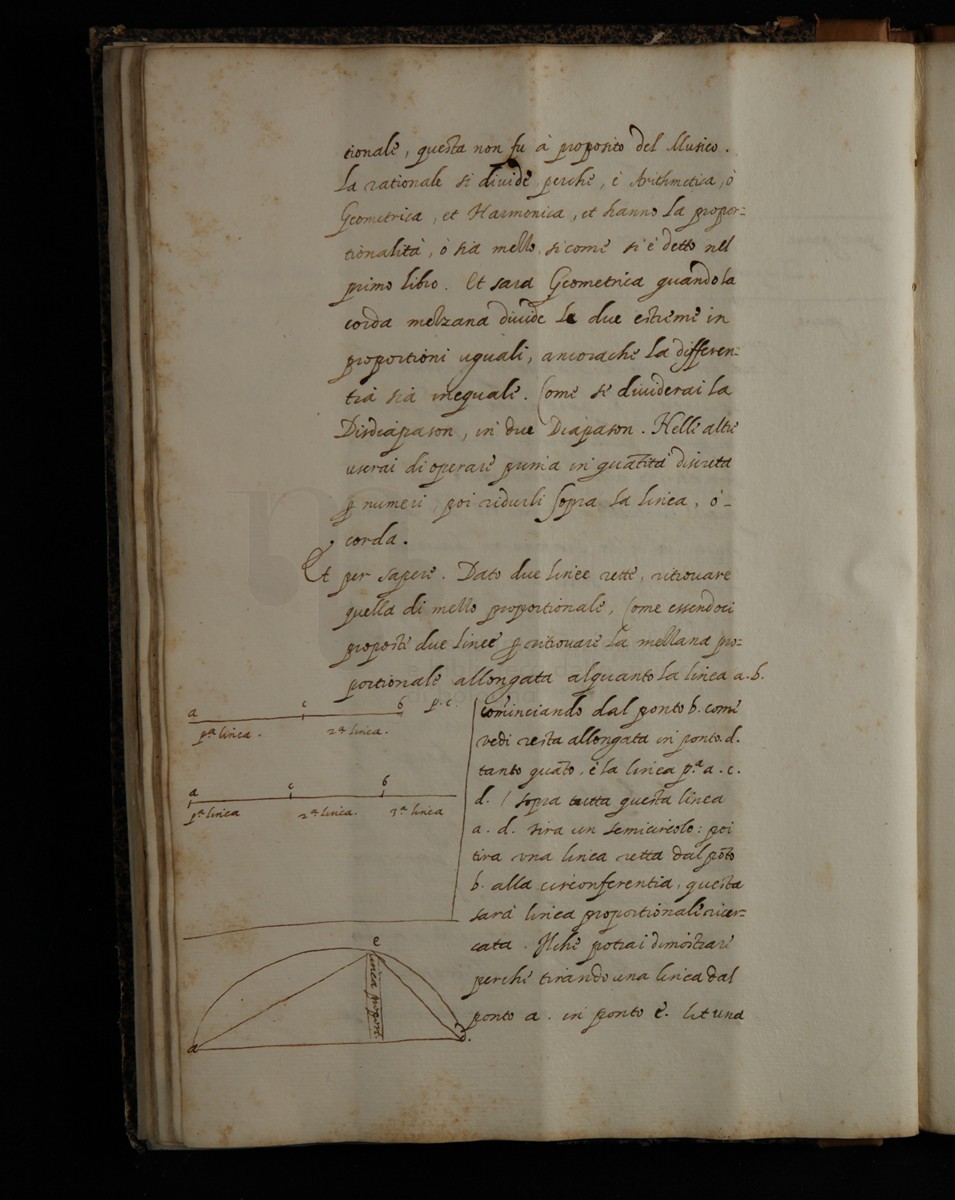 tionale, questa non fu à proposito del Musico.
La rationale si divide, perche, è Arithmetica, ò
Geometrica, et Harmonica, et hanno la propor=
tionalità, o sia mezzo, si come si è detto nel
primo libro. Et sarà Geometrica quando la
corda mezzana divide le due estreme in
proportioni uguali, ancorache la differen=
tia sia ineguale. Come se dividerai la
Disdiapason, in due Diapason. Nelle altre
userai di operare prima in quãtità discreta
p numeri, poi ridurli sopra la linea, ò
corda.
Et per sapere. Dato due linee rette, ritrovare
quella di mezzo proportionale, Come essendoci
proposte due linee p ritrovare la mezzana pro=
portionale allongata alquanto la linea a.b.
cominciando dal ponto b. come
vedi resta allongata in ponto. d.
tanto quãto, è la linea p.ª a. c.
d. / sopra tutta questa linea
a. d. tira un semicircolo: poi
tira una linea retta dal põto
b. alla circonferentia, questa
sarà linea proportionale ricer=
cata. Ilche potrai dimostrare
perche tirando una linea dal
ponto a. in ponto e. Et una
a c b p. c.
pª linea. 2ª linea.
a c b
pª linea 2ª linea. 3ª linea
e
linea proport.
a d.